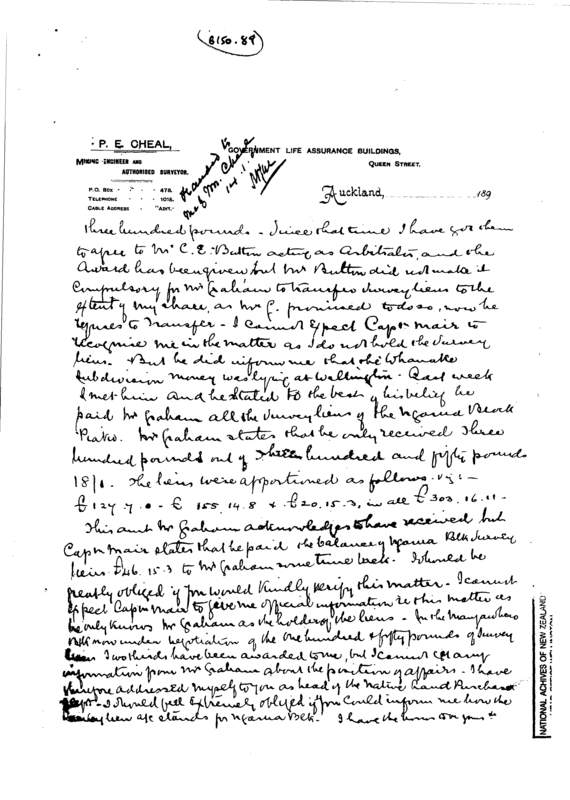 8150.89
P. E. CHEAL,
MINING ENGINEER AND
AUTHORISED SURVEYOR.
P.O. BOX 478.
TELEPHONE 1018.
CABLE ADDRESS "ADIT."
GOVERNMENT LIFE ASSURANCE BUILDINGS,
QUEEN STREET.
Auckland, 189
handed to
me by Mr. Cheal
14.1.
three hundred pounds - Since that time I have got them
to agree to Mr C. E. Button acting as Arbitrator, and the
Award has been given but Mr Button did not make it
Compulsory for Mr Graham to transfer survey liens to the
extent of my share, as Mr G. promised to do so, now he
refuses to transfer - I cannot expect Captn Mair to
recognise me in the matter as I do not hold the survey
liens. But he did inform me that the Whanake
subdivision money was lying at Wellington. Last week
I met him and he stated to the best of his belief he
paid Mr Graham all the survey liens of the Ngarua Block
Piako. Mr Graham states that he only received three
hundred pounds out of three hundred and fifty pounds
18/1. The liens were apportioned as follows. viz: -
£127.7.0 - £155.14.8 & £20.15.3, in all £303.16.11 -
This amt Mr Graham acknowledges to have received but
Captn Mair states that he paid the balance of Ngarua Blk Survey
liens £46.15.3 to Mr Graham some time back. I should be
greatly obliged if you would kindly verify this matter. I cannot
expect Captn Mair to give me official information re this matter as
he only knows Mr Graham as the holder of the liens - In the
Blk now under negotiation of the one hundred & fifty pounds of survey
liens two thirds have been awarded to me, but I cannot get any
information from Mr Graham about the position of affairs - I have
therefore addressed myself to you as head of the Native Land Purchase
Dept - I should feel extremely obliged if you could inform me how the
lien a/c stands for Ngarua Blk. I have the honor to be yours &c
NATIONAL ACHIVES OF NEW ZEALAND